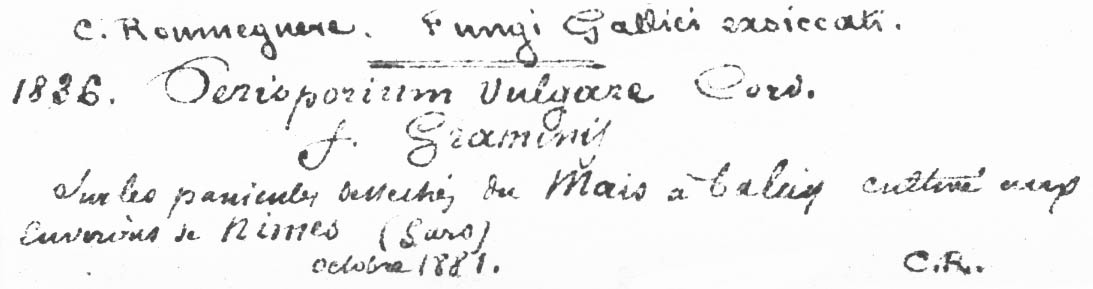 C. Roumeguere. Fungi Gallici exsiccati.
1836. Perisporium Vulgare Cord.
f. Graminis
Sur les panicules desséchés du Maïs à balais cultivé aux
environs de Nimes (Gard)
octobre 1881. C.R.